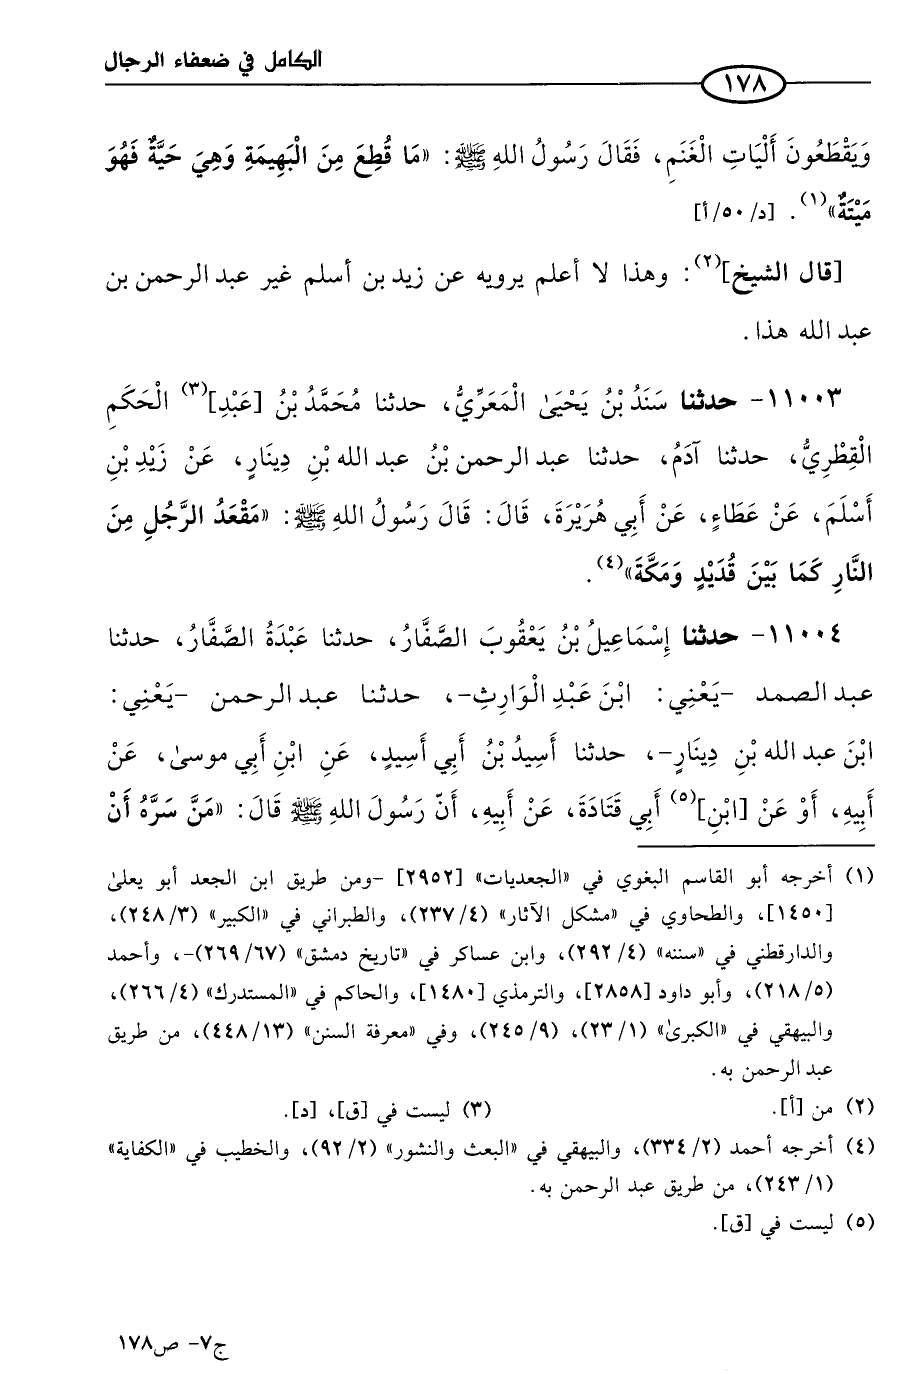 الكامل في ضعفاء الرجال
١٧٨
وَيَقْطَعُونَ أَلْيَاتِ الْغَنَمِ، فَقَالَ رَسُولُ اللهِ ﷺ: «مَا قُطِعَ مِنَ الْبَهِيمَةِ وَهِيَ حَيَّةٌ فَهُوَ
مَيْتَةٌ»(١). [د/٥٠/أ]
[قال الشيخ](٢): وهذا لا أعلم يرويه عن زيد بن أسلم غير عبد الرحمن بن
عبد الله هذا.
١١٠٠٣- حدثنا سَنَدُ بْنُ يَحْيَىٰ الْمَعَرِّيُّ، حدثنا مُحَمَّدُ بْنُ [عَبْدِ](٣) الْحَكَمِ
الْقِطْرِيُّ، حدثنا آدَمُ، حدثنا عبد الرحمن بْنُ عبد الله بْنِ دِينَارٍ، عَنْ زَيْدِ بْنِ
أَسْلَمَ، عَنْ عَطَاءٍ، عَنْ أَبِي هُرَيْرَةَ، قَالَ: قَالَ رَسُولُ اللهِ ﷺ: «مَقْعَدُ الرَّجُلِ مِنَ
النَّارِ كَمَا بَيْنَ قُدَيْدٍ وَمَكَّةَ»(٤).
١١٠٠٤- حدثنا إِسْمَاعِيلُ بْنُ يَعْقُوبَ الصَّفَّارُ، حدثنا عَبْدَةُ الصَّفَّارُ، حدثنا
عبد الصمد -يَعْنِي: ابْنَ عَبْدِ الْوَارِثِ-، حدثنا عبد الرحمن -يَعْنِي:
ابْنَ عبد الله بْنِ دِينَارٍ-، حدثنا أَسِيدُ بْنُ أَبِي أَسِيدٍ، عَنِ ابْنِ أَبِي موسىٰ، عَنْ
أَبِيهِ، أَوْ عَنْ [ابْنِ](٥) أَبِي قَتَادَةَ، عَنْ أَبِيهِ، أَنّ رَسُولَ اللهِ ﷺ قَالَ: «مَنَّ سَرَّهُ أَنْ
(١) أخرجه أبو القاسم البغوي في «الجعديات» [٢٩٥٢] -ومن طريق ابن الجعد أبو يعلىٰ
[١٤٥٠]، والطحاوي في «مشكل الآثار» (٤/ ٢٣٧)، والطبراني في «الكبير» (٣/ ٢٤٨)،
والدارقطني في «سننه» (٤/ ٢٩٢)، وابن عساكر في «تاريخ دمشق» (٦٧/ ٢٦٩)-، وأحمد
(٥/ ٢١٨)، وأبو داود [٢٨٥٨]، والترمذي [١٤٨٠]، والحاكم في «المستدرك» (٤/ ٢٦٦)،
والبيهقي في «الكبرىٰ» (١/ ٢٣)، (٩/ ٢٤٥)، وفي «معرفة السنن» (١٣/ ٤٤٨)، من طريق
عبد الرحمن به.
(٢) من [أ]. (٣) ليست في [ق]، [د].
(٤) أخرجه أحمد (٢/ ٣٣٤)، والبيهقي في «البعث والنشور» (٢/ ٩٢)، والخطيب في «الكفاية»
(١/ ٢٤٣)، من طريق عبد الرحمن به.
(٥) ليست في [ق].
ج٧- ص١٧٨